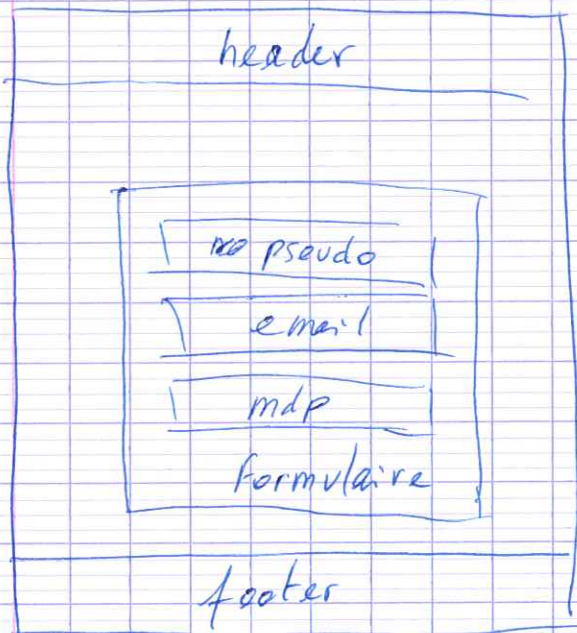 header
pseudo
email
mdp
formulaire
footer